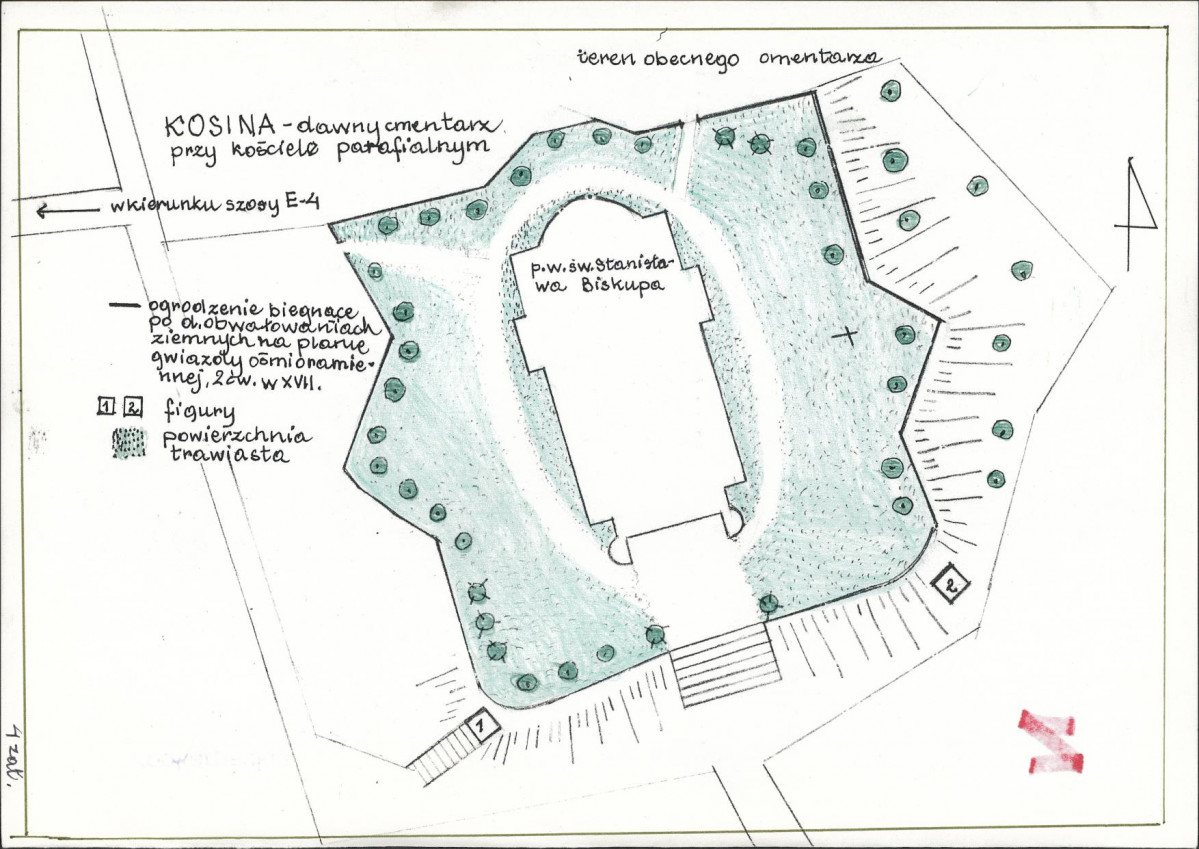 teren obecnego cmentarza
KOSINA - dawny cmentarz
przy kościele parafialnym
w kierunku szosy E-4
p.w. św. Stanisła-
wa Biskupa
ogrodzenie biegnące
po d. obwałowaniach
ziemnych na planie
gwiazdy ośmioramie-
nnej, 2 ćw. w XVII.
1 2 figury
powierzchnia
trawiasta
2
1
4 zał.
N